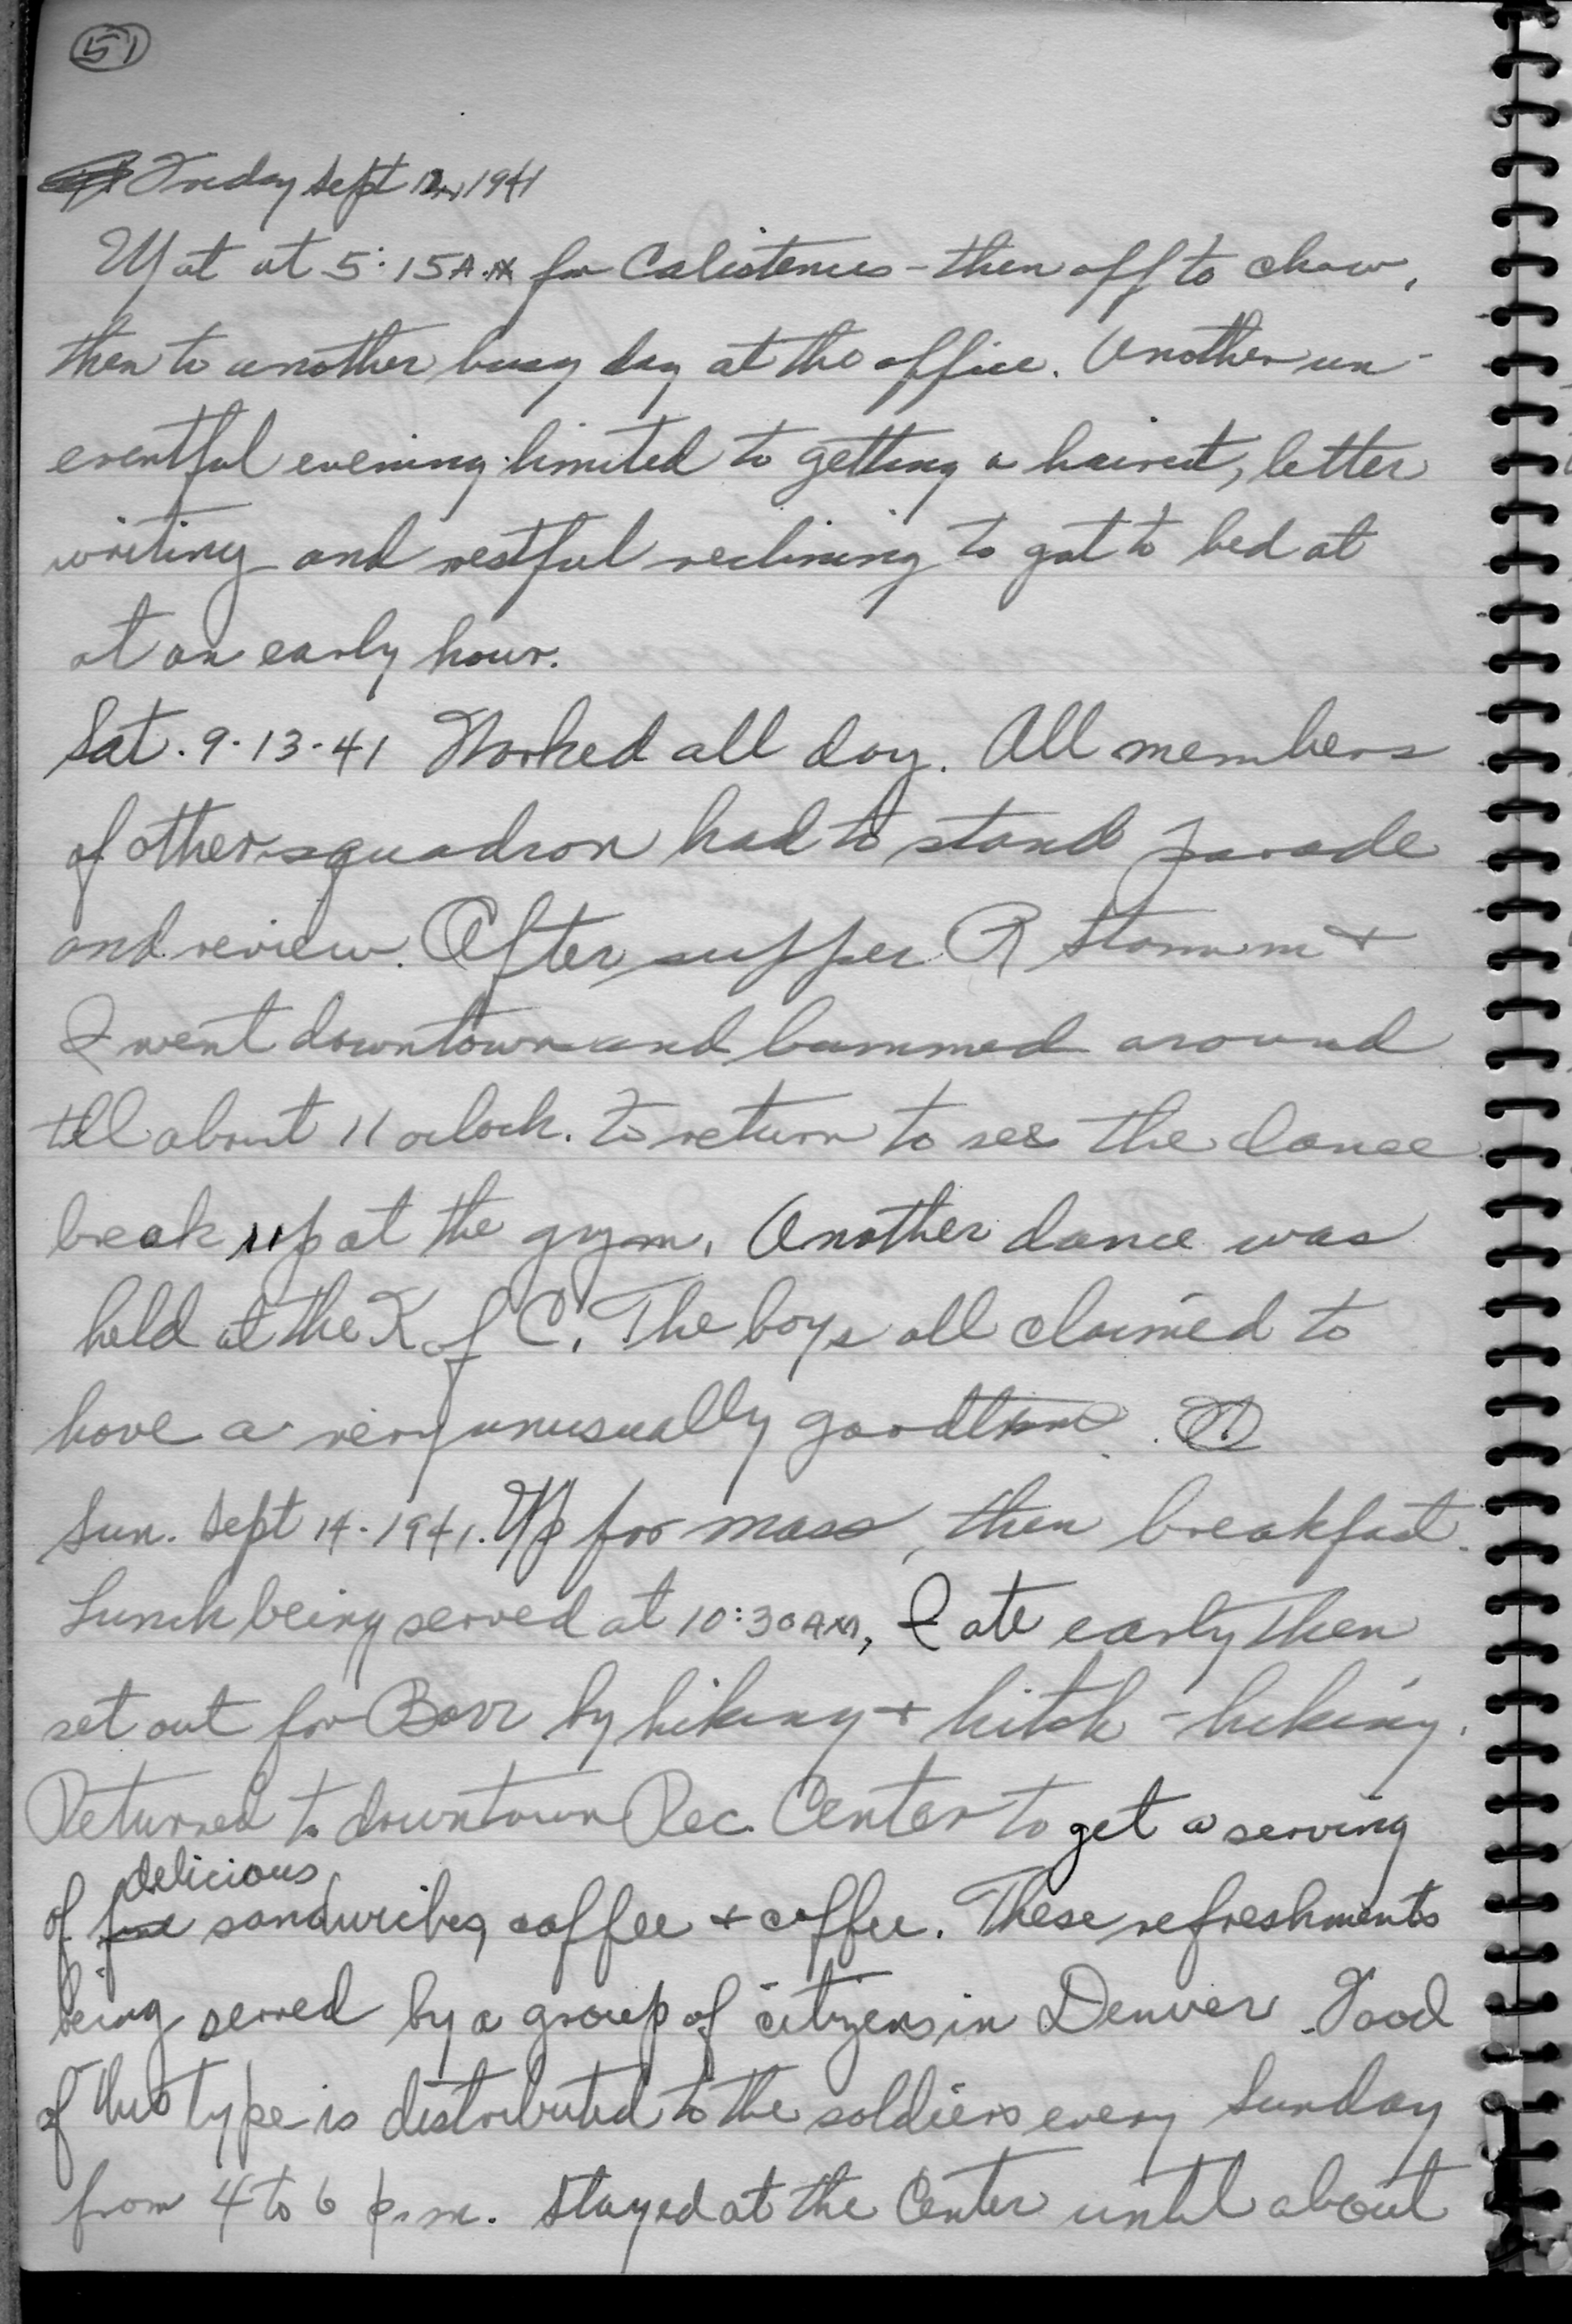 51
Friday Sept 12, 1941
Up at at 5:15 A.M. for Calistenics - then off to chow,
then to another busy day at the office. Another un-
eventful evening limited to getting a haircut, letter
writing and restful reclining to get to bed at
at an early hour.
Sat. 9-13-41 Worked all day. All members
of other squadron had to stand parade
and review. After supper R Stamm +
I went downtown and bummed around
till about 11 oclock. to return to see the dance
break up at the gym. Another dance was
held at the K of C. The boys all claimed to
have a very unusually good time.
Sun. Sept 14-1941. Up for mass, then breakfast.
Lunch being served at 10:30 AM, I ate early then
set out for Barr by hiking + hitch-hiking.
Returned to downtown Rec. Center to get a serving
delicious
of fine sandwiches, coffee + coffee. These refreshments
being served by a group of citizens in Denver. Food
of this type is distributed to the soldiers every Sunday
from 4 to 6 p.m. Stayed at the Center until about